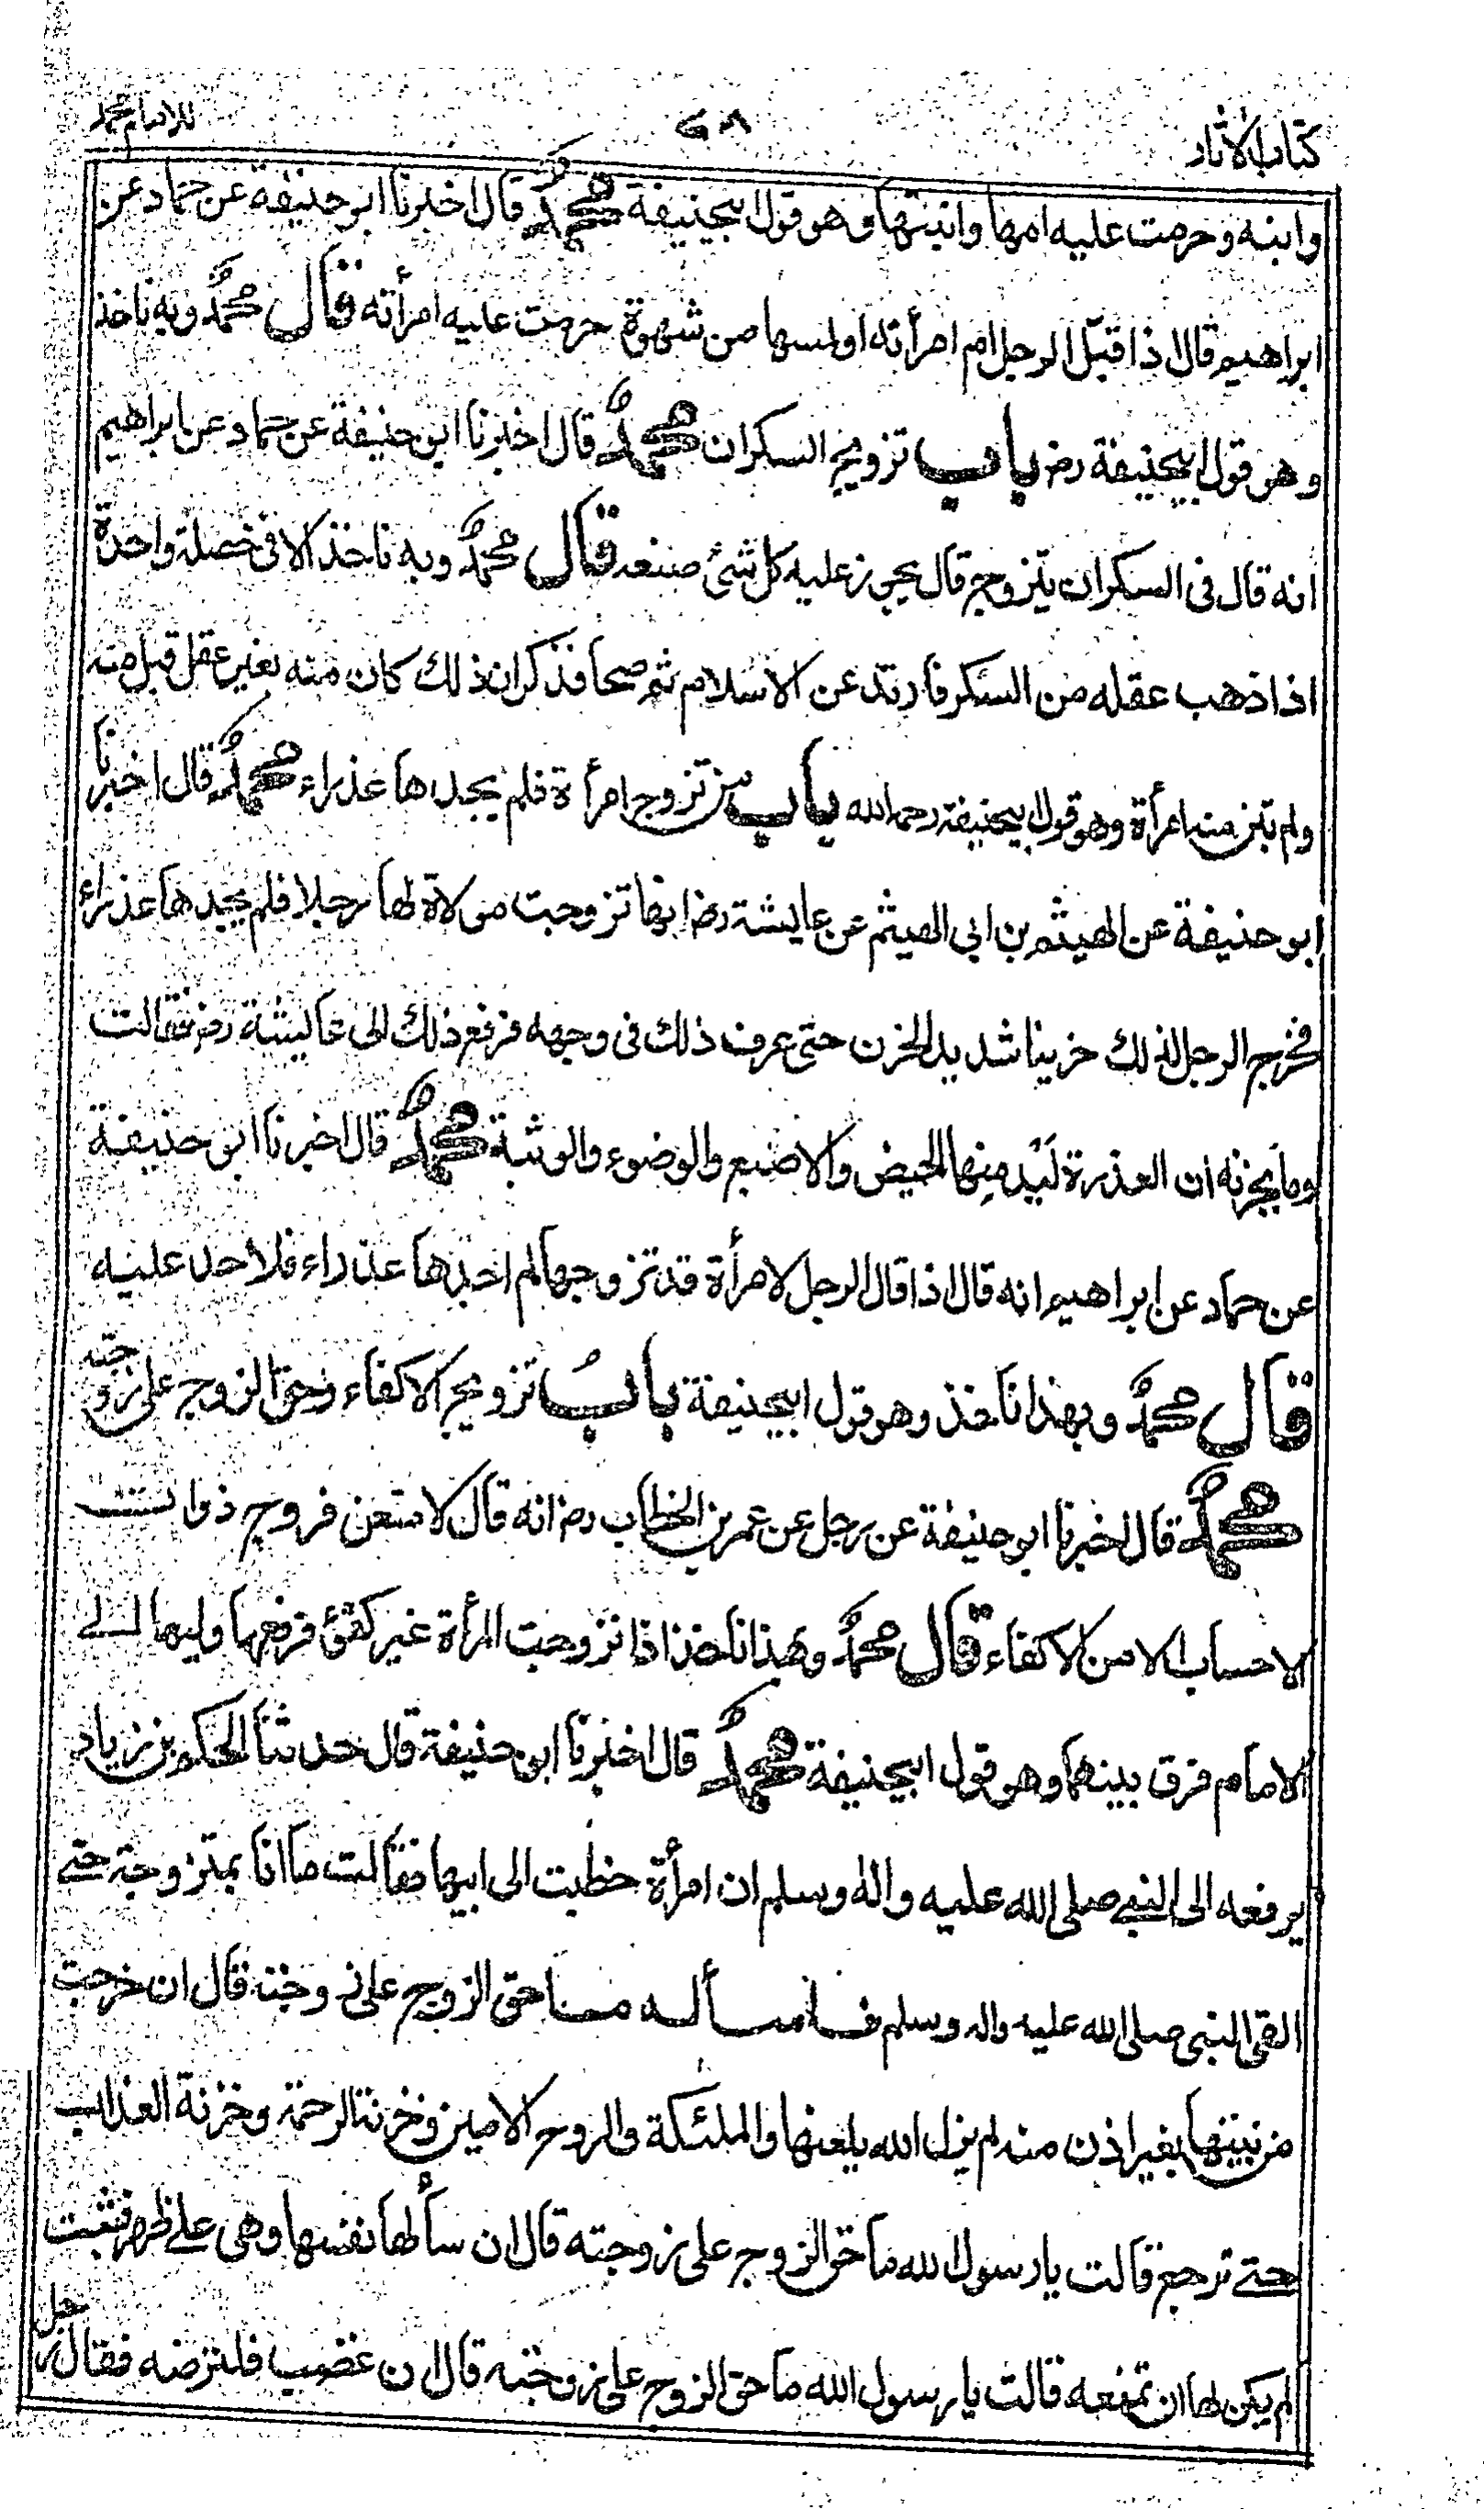 كتاب الاثار ٦٨ للامام محمد
وابنه وحرمت عليه امها وابنتها وهو قول ابيحنيفة محمد قال اخبرنا ابو حنيفة عن حماد عن
ابراهيم قال اذا قبّل الرجل ام امرأته او لمسها من شهوة حرمت عليه امرأته قال محمد وبه ناخذ
وهو قول ابيحنيفة رض باب تزويج السكران محمد قال اخبرنا ابو حنيفة عن حماد عن ابراهيم
انه قال فى السكران يتزوج قال يجوز عليه كل شئ صنعه قال محمد وبه ناخذ الا فى خصلة واحدة
اذا ذهب عقله من السكر فارتد عن الاسلام ثم صحا فذكر ان ذلك كان منه بغير عقل قبل منه
ولم تبن منه امرأة وهو قول ابيحنيفة رحمه الله باب من تزوج امرأة فلم يجدها عذراء محمد قال اخبرنا
ابو حنيفة عن الهيثم بن ابى الهيثم عن عايشة رض انها تزوجت مولاة لها رجلا فلم يجدها عذراء
فخرج الرجل لذلك حزينا شديد الحزن حتى عرف ذلك فى وجهه فرفع ذلك الى عايشة رض فقالت
وما يحزنه ان العذرة ليد منها الحيض والاصبع والوضوء والوثبة محمد قال اخبرنا ابو حنيفة
عن حماد عن ابراهيم انه قال اذا قال الرجل لامرأة قد تزوجها لم اجدها عذراء فلا حد عليه
قال محمد وبهذا ناخذ وهو قول ابيحنيفة باب تزويج الاكفاء وحق الزوج على زوجته
محمد قال اخبرنا ابو حنيفة عن رجل عن عمر بن الخطاب رض انه قال لامنعن فروج ذوات
الاحساب الا من الاكفاء قال محمد وبهذا ناخذ اذا تزوجت المرأة غير كفئ فرفعها وليها الى
الامام فرق بينهما وهو قول ابيحنيفة محمد قال اخبرنا ابو حنيفة قال حدثنا الحكم بن زياد
يرفعه الى النبى صلى الله عليه واله وسلم ان امرأة خطبت الى ابيها فقالت ما انا بمتزوجة حتى
القى النبى صلى الله عليه واله وسلم فاسأله ما حق الزوج على زوجته قال ان خرجت
من بيتها بغير اذن منه لم يزل الله يلعنها والملئكة والروح الامين وخزنة الرحمة وخزنة العذاب
حتى ترجع قالت يا رسول الله ما حق الزوج على زوجته قال ان سألها نفسها وهى على ظهر قتب
لم يكن لها ان تمنعه قالت يا رسول الله ما حق الزوج على زوجته قال ان غضب فلترضه فقال رجل